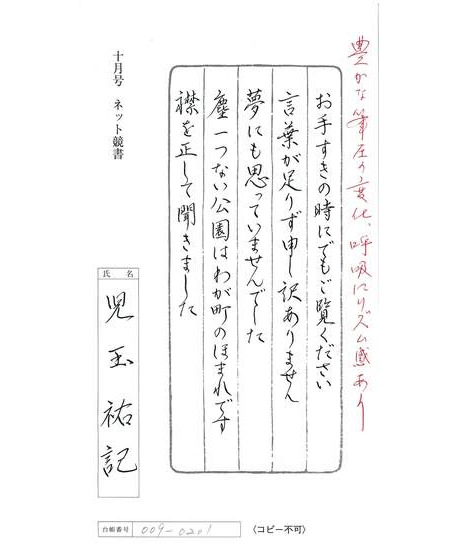 豊かな筆圧の変化、呼吸にリズム感あり
お手すきの時にでもご覧ください
言葉が足りず申し訳ありません
夢にも思っていませんでした
塵一つない公園はわが町のほまれです
襟を正して聞きました
十月号 ネット競書
氏名
児玉祐記
台帳番号 009-0201
〈コピー不可〉